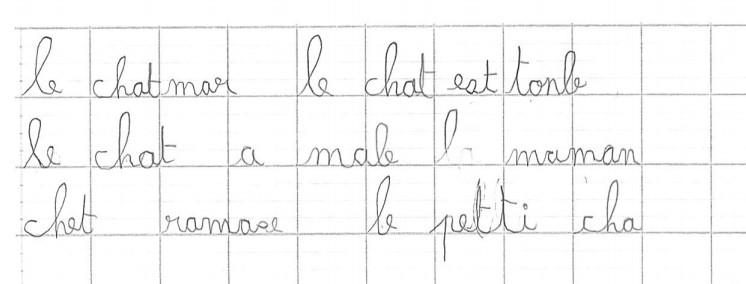 le chat mar le chat est tonle
le chat a male l maman
chet ramase le petti cha